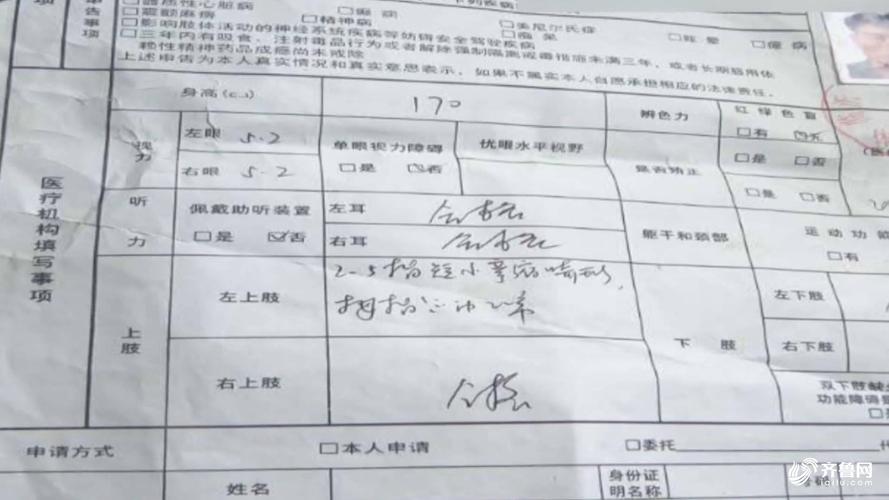 □器质性心脏病 □癫痫
□眩晕 □癔病
□震颤麻痹 □精神病 □痴呆
□影响肢体活动的神经系统疾病等妨碍安全驾驶疾病
□三年内有吸食、注射毒品行为或者解除强制隔离戒毒措施未满三年，或者长期服用依
赖性精神药品成瘾尚未戒除
上述申告为本人真实情况和真实意思表示，如果不属实本人自愿承担相应的法律责任。
医疗机构填写事项
身高(cm) 170 辨色力 红绿色盲
□有 ☑无
视力 左眼 5.2 单眼视力障碍 优眼水平视野 是否矫正 □是 □否
右眼 5.2 □是 ☑否 □是 □否
听力 佩戴助听装置 左耳 合格 躯干和颈部 运动功能
□是 ☑否 右耳 合格 □有
上肢 左上肢 2-5指短小 畸形， 下肢 左下肢
拇指 正常 右下肢
右上肢 合格 双下肢缺
功能障碍
申请方式 □本人申请 □委托
姓名 身份证
明名称
齐鲁网
iqilu.com